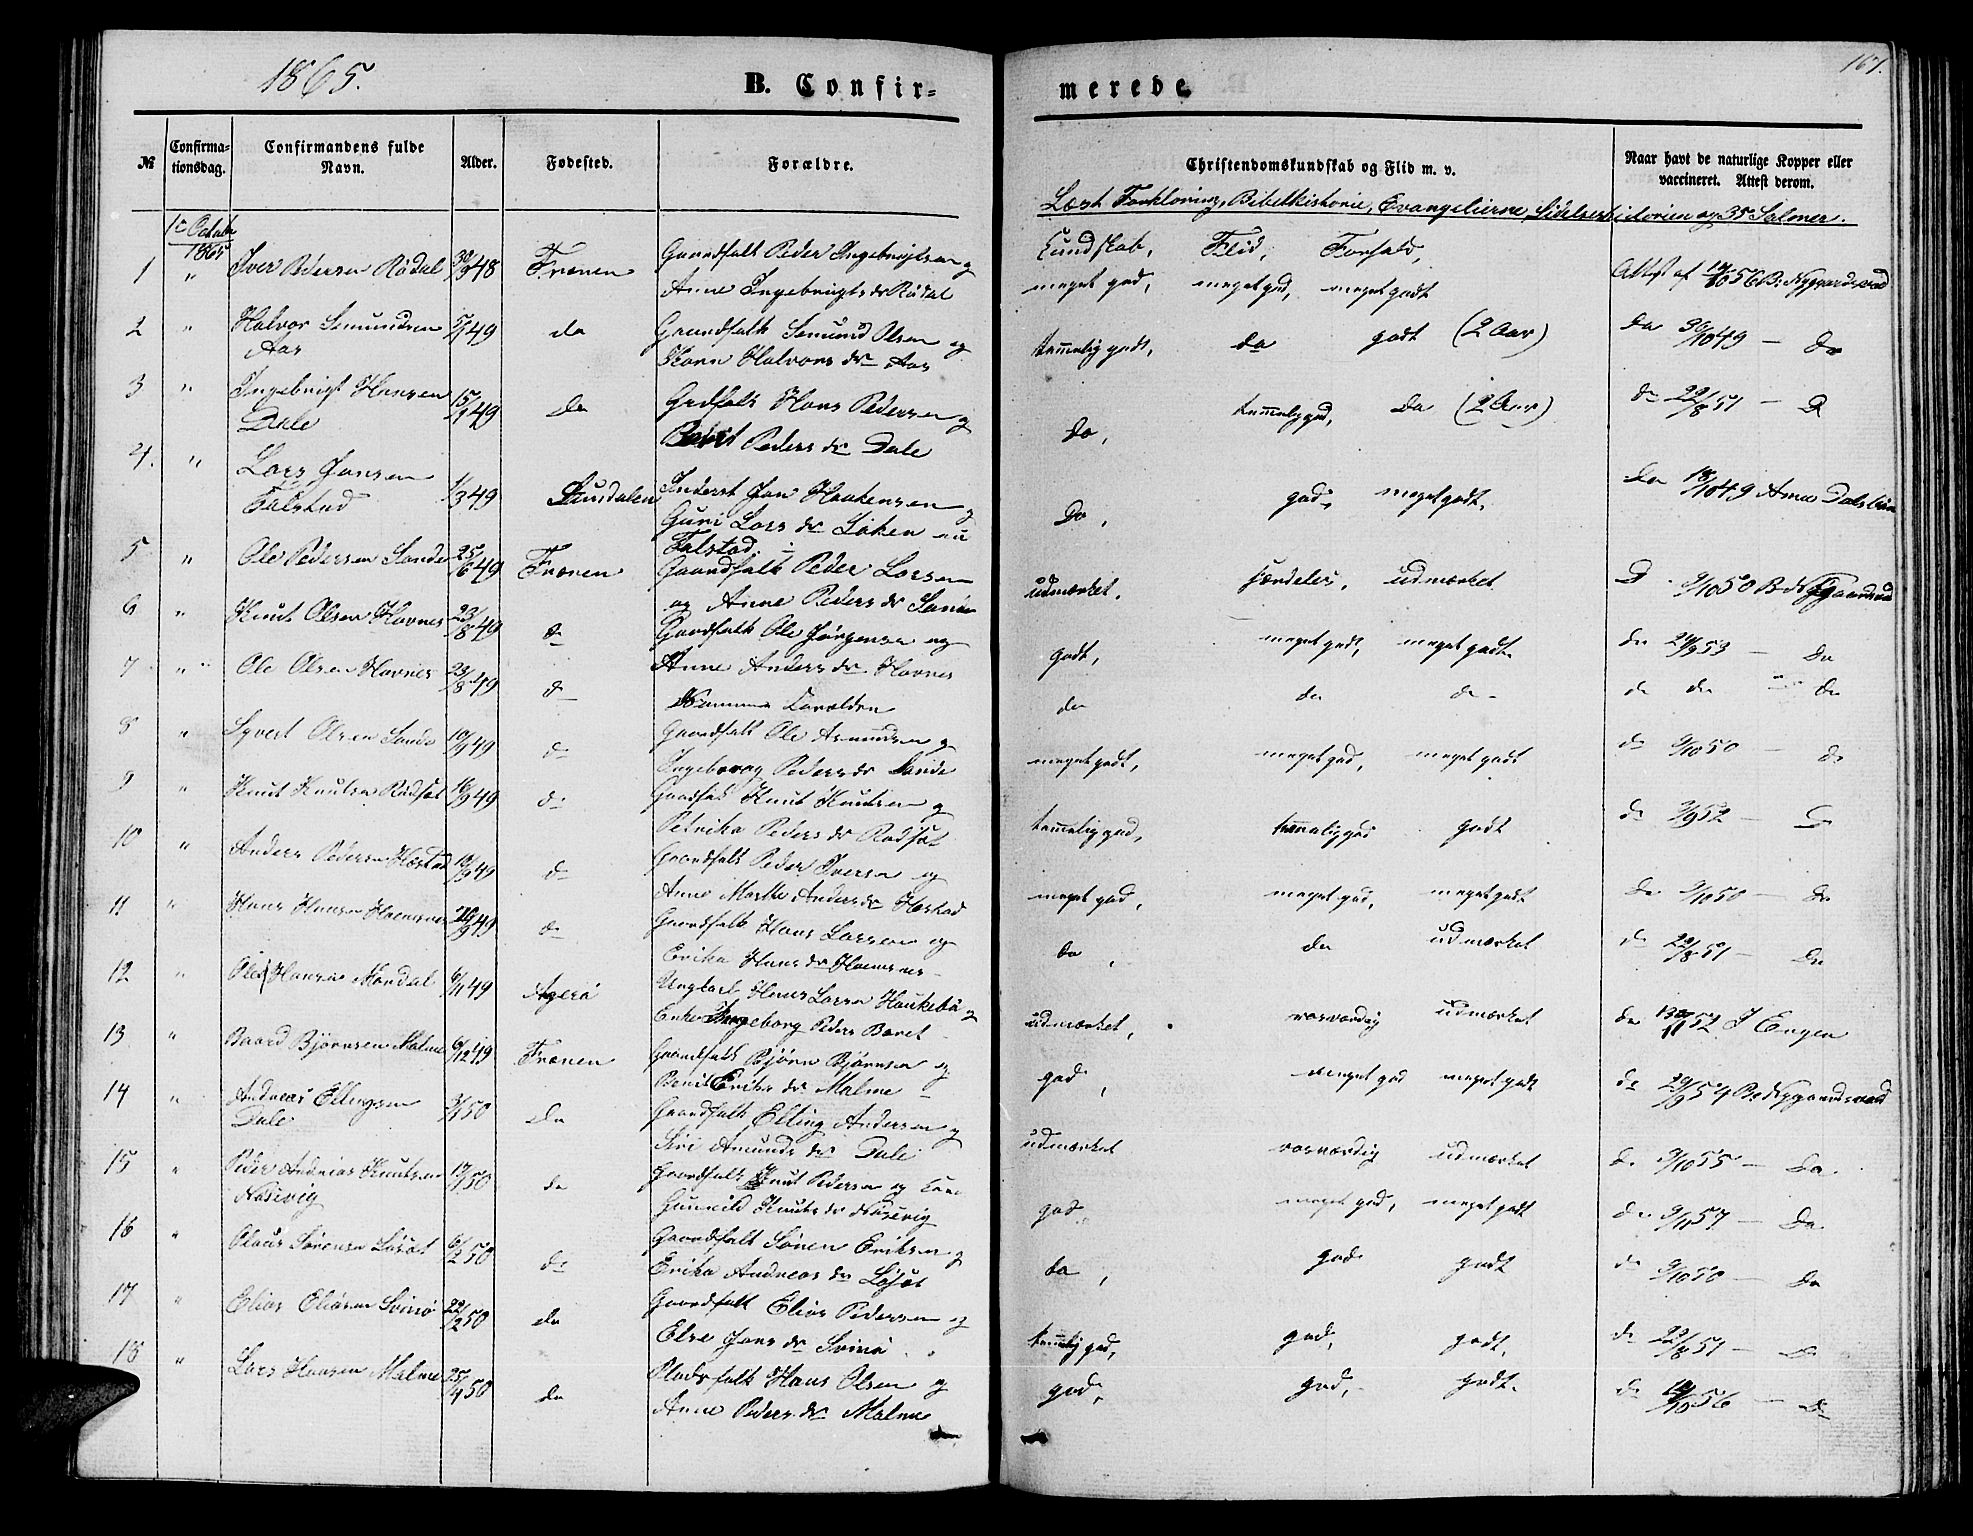 1865.
B. Confir-
merede
167.
№
Confirma-
tionsdag.
Confirmandens fulde
Navn.
Alder.
Fødested.
Forældre.
Christendomskundskab og Flid m. v.
Naar havt de naturlige Kopper eller
vaccineret. Attest derom.
Læst Forklaring, Bibelhistorie, Evangelierne, Lidelseshistorien og 35 Salmer.
1865
Kundskab, Flid, Forhold,
1 " Iver Pedersen Rødal 30/9 48 Frænen Gaardfolk Peder Ingebrigtsen og
Anne Ingebrigts dr Rødal meget god, meget god, meget godt Attest af 56 B. Nygaardsvold
2 " Halvor Semundsen 5/1 49 do Gaardfolk Semund Olsen og
Aas Karen Halvors dr Aas tammelig godt, do godt (2 Aar) do 30/10 49 — do
3 " Ingebrigt Hansen 15/1 49 do Grdfolk Hans Pedersen og
Dale Peders dr Dale do, tammelig god, do (2 Aar) do 22/8 51 — D
4. " Lars Jonsen 1/3 49 Sundalen Inderst Jon Haakensen og
Falstad Guri Lars dr Løken nu
Falstad. Do, god, meget godt, do 18/10 49 Arne
5 " Ole Pedersen Sande 25/6 49 Frænen Gaardfolk Peder Larsen
og Anne Peders dr Sande udmærket, særdeles, udmærket D 9/10 50 B Nygaardsvold
6 " Knut Olsen Havnes 23/8 49 d Gaardfolk Ole Jørgensen og
Anne Anders dr Havnes godt, meget god, meget godt. do 24/9 53 — do
7 " Ole Olsen Havnes 23/8 49 d Samme Forældre do do do do do do
8 " Syvert Olsen Sande 10/9 49 d Gaardfolk Ole Asmundsen og
Ingeborg Peders dr Sande meget godt, meget god, meget godt do 9/10 50 — do
9 " Knut Knutsen Rødsæt 16/9 49 do Gaardfolk Knut Knutsen og
Petrika Peders dr Rødsæt tammelig god, tammelig god godt do 9/9 52 — D
10 " Anders Pedersen Hostad 18/9 49 d Gaardfolk Peder Iversen og
Anne Marthe Anders dr Hostad meget god, meget god, meget godt do 9/10 50 — do
11 " Hans Hansen 49 do Gaardfolk Hans Larsen og
Erika Hans dr do, do udmærket do 22/8 51 — do
12 " Ole Hansen Mondal 6/11 49 Agerø Ungkarl Hans Larsen Haukebø og
Enke Ingeborg Peders udmærket, roesværdig udmærket do 52 J Engen
13 " Baard Bjørnsen Malme 6/12 49 Frænen Gaardfolk Bjørn Bjørnsen og
Berit Eriks dr Malme god, meget god meget godt do 29/9 54 B Nygaardsvold
14 " Andreas Ellingsen 3/1 50 do Gaardfolk Elling Andersen og
Dale Siri Amunds dr Dale udmærket roesværdig udmærket do 9/10 55 — do
15 " Peder Andreas Knutsen 17/1 50 do Gaardfolk Knut Pedersen og Kone
Nasvig Gunnild Knuts dr Nasvig god meget god, meget godt do 9/11 57 — do
16 " Olaus Sørensen Løsæt 6/2 50 do Gaardfolk Søren Eriksen og
Erika Andreas dr Løsæt do, god godt do 9/10 50 — do
17 " Elias Eliasen Svinø 22/2 50 do Gaardfolk Elias Pedersen og
Else Jons dr Svinø tammelig god, god, godt. do 22/8 51 — D
18 " Lars Hansen Malme 25/4 50 do Pladsfolk Hans Olsen og
Anne Peders dr Malme god, god, godt. do 56 — D